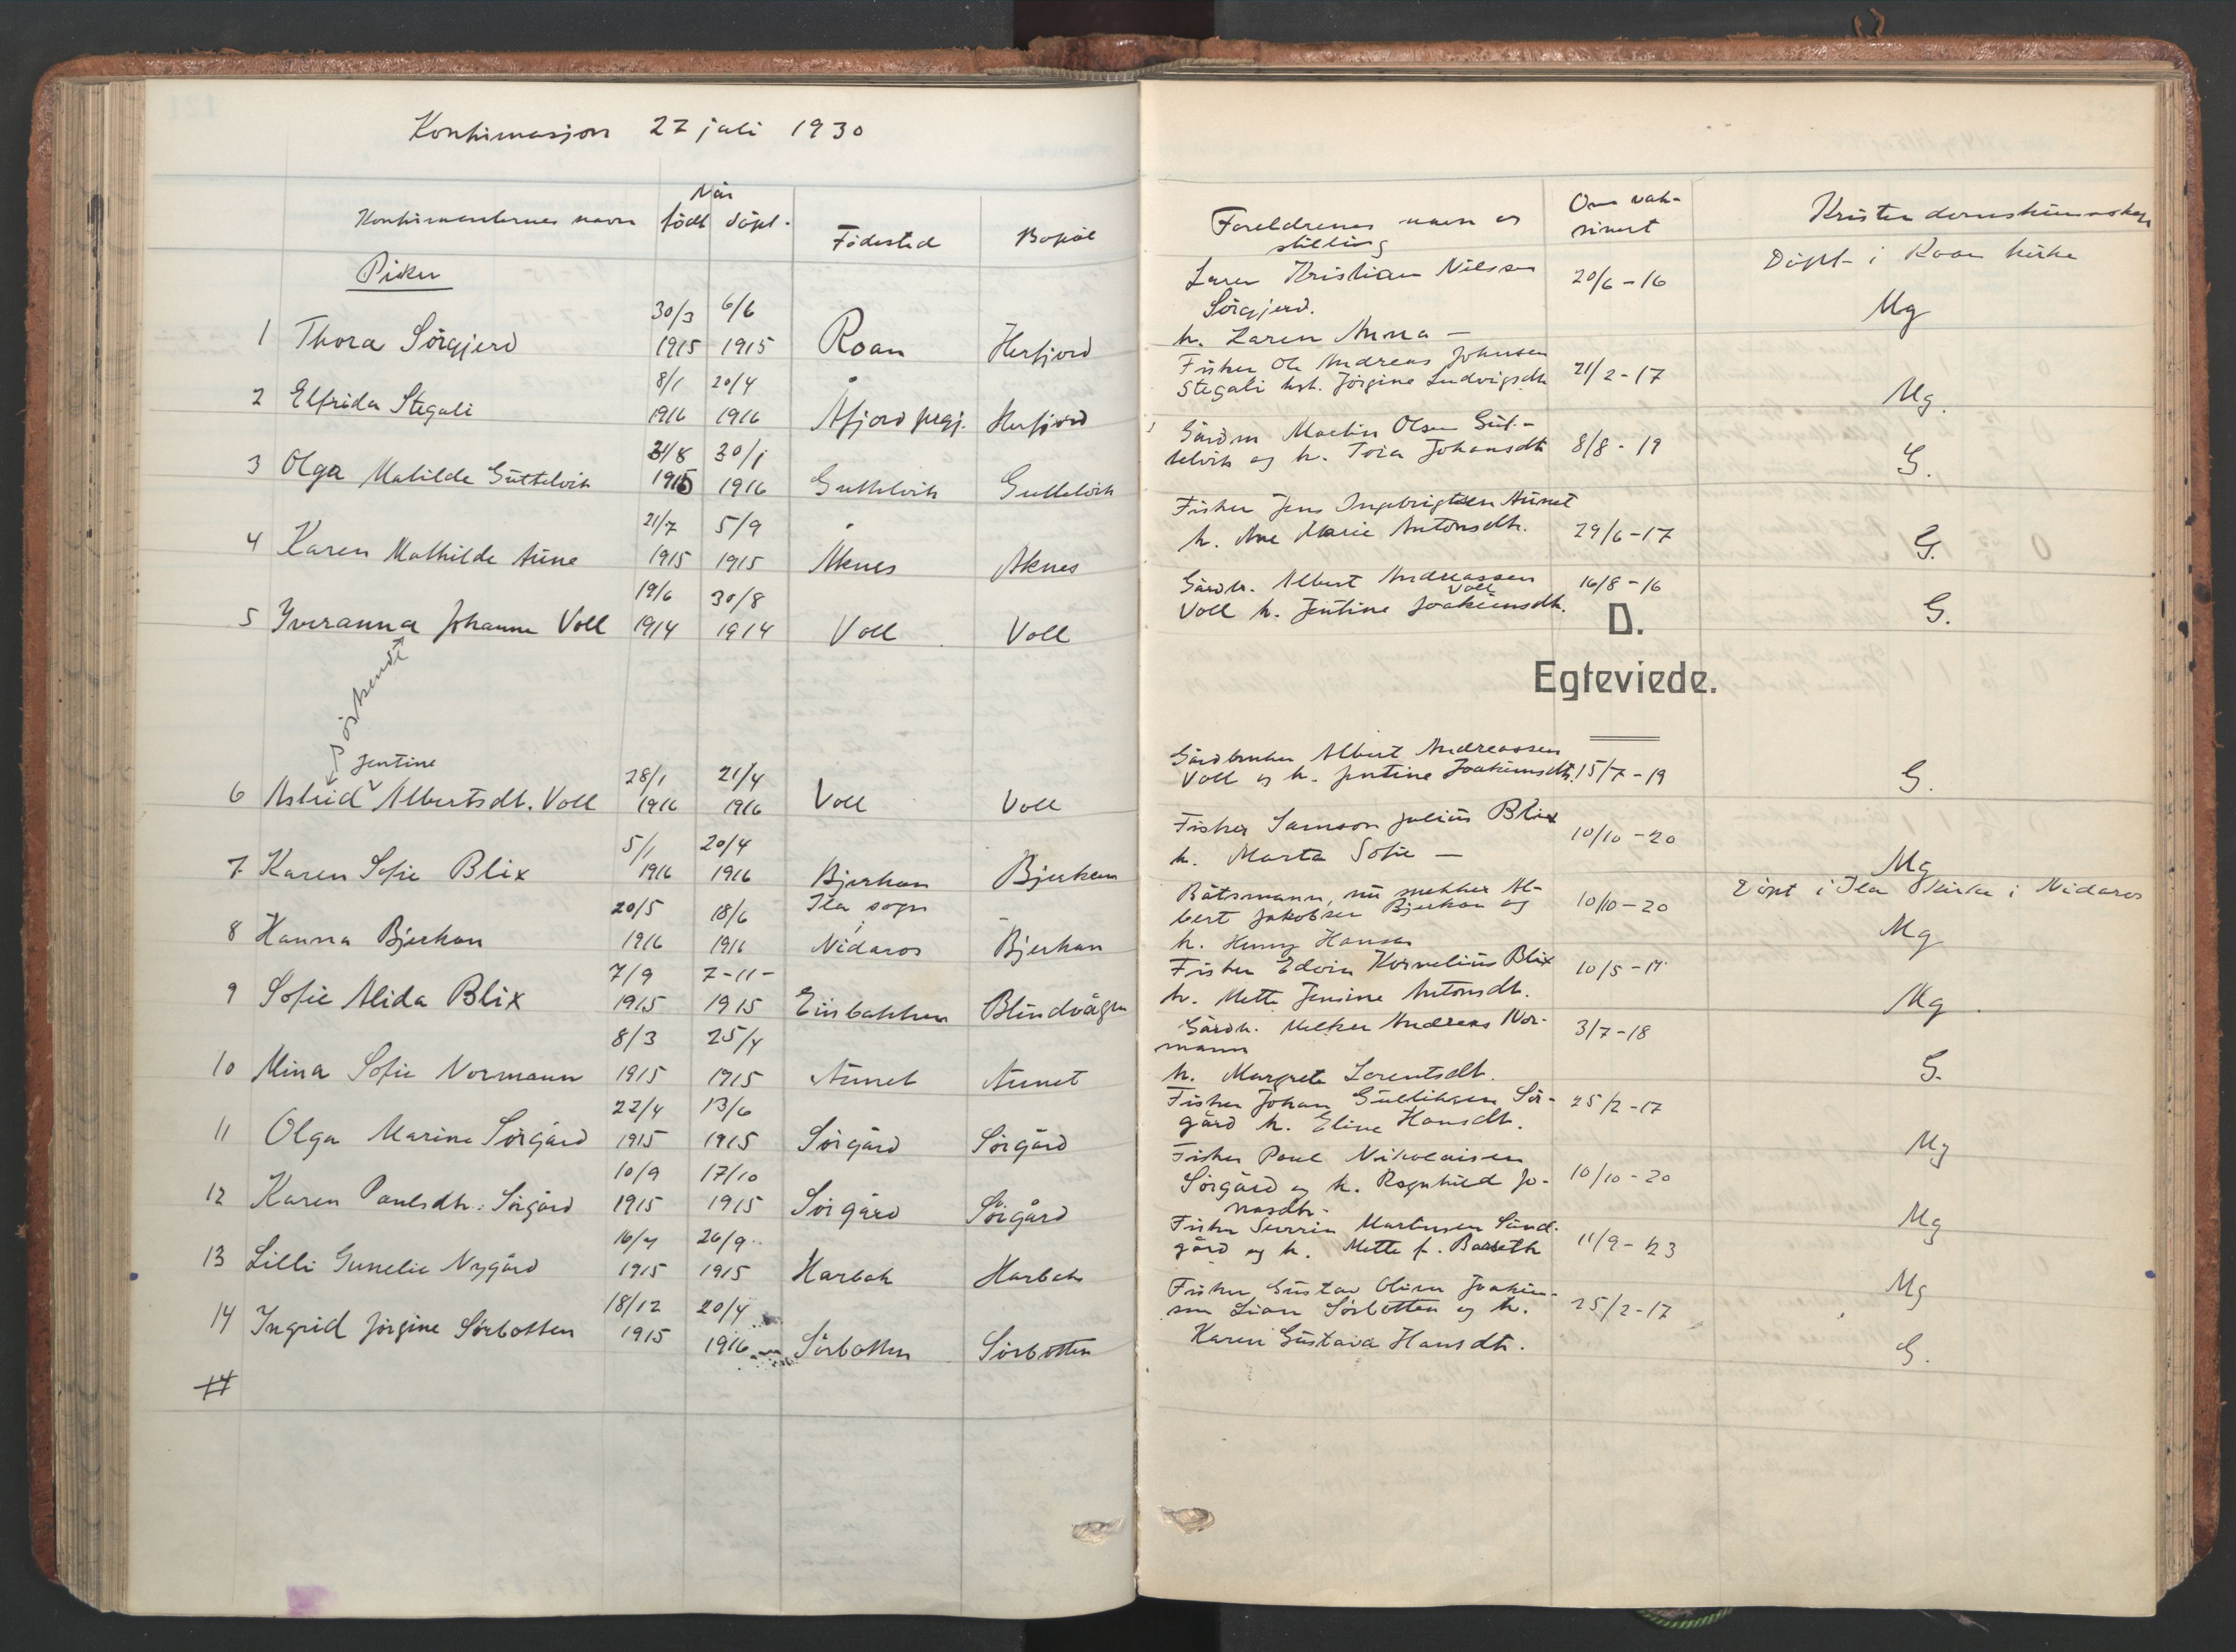 Konfirmasjon 27 juli 1930
Når
Konfirmantenes navn født døpt. Fødested Bopæl
Piker
30/3 6/6
1 Thora Sörgjerd 1915 1915 Roan Herfjord
8/1 20/4
2 Elfrida Stegali 1916 1916 Åfjord prgj. Herfjord
31/8 30/1
3 Olga Matilde Guttelvik 1915 1916 Guttelvik Guttelvik
21/7 5/9
4 Karen Mathilde Aune 1915 1915 Åknes Aknes
19/6 30/8
5 Yveranna Johanne Voll 1914 1914 Voll Voll
söskende
Jentine
28/1 21/4
6 Astrid Albertsdt. Voll 1916 1916 Voll Voll
5/1 20/4
7 Karen Sofie Blix 1916 1916 Bjerkan Bjerkan
20/5 18/6 Ila sogn
8 Hanna Bjerkan 1916 1916 i Nidaros Bjerkan
7/9 7-11-
9 Sofie Alida Blix 1915 1915 Einbakken Blindvågen
8/3 25/4
10 Mina Sofie Normann 1915 1915 Aunet Aunet
22/4 13/6
11 Olga Marine Sörgård 1915 1915 Sörgård Sörgård
10/9 17/10
12 Karen Paulsdtr. Sörgård 1915 1915 Sörgård Sörgård
26/9
13 Lilli Gunelie Nygård 1915 1915 Harbak Harbak
18/12 20/4
14 Ingrid Jörgine Sörbotten 1915 1916 Sörbotten Sörbotten
Foreldrenes navn og Om vak- Kristendomskunnskap
stilling sinert
Döpt i Roan kirke
Kristian Nilsen 20/6-16
Sörgjerd. Mg
h. Karen Anna —
Fisker Ole Andreas Johnsen 21/2-17
Stegali hst. Jörgine Ludvigsdtr Mg.
Gårdm Martin Olsen Gut-
telvik og h. Johansdtr 8/8-19 G.
Fisker Jens Ingebrigtsen Aunet
h. Ane Marie Antonsdtr. 29/6-17 G.
Gårdbr. Albert Andreassen 16/8-16
Voll
Voll h. Jentine Joakimsdtr. G.
D.
Egteviede.
Gårdbruker Albert Andreassen
Voll og h. Jentine Joakimsdtr. 15/7-19 G.
Fisker Samson Julius Blix 10/10-20
h. Marta Sofie — Mg
Båtsmann, nu snekker Al- Döpt i Ila kirke i Nidaros
bert Jakobsen Bjerkan og 10/10-20 Mg
h. Henny Hansen
Fisker Edvin Kornelius Blix 10/5-17
h. Mette Jensine Antonsdtr. Mg.
Gårdbr. Melker Andreas Nor- 3/7-18
mann
h. Margrete Lorentsdtr. G.
Fisker Johan Gulliksen Sör- 25/2-17
gård h. Eline Hansdtr. Mg
Fisker Paul Nikolaisen
Sörgård og h. Ragnhild Jo- 10/10-20
nasdtr. Mg
Fisker Martinsen
gård og h. Mette f. Barseth 11/9-23 Mg
Fisker Gustav Olian Joakim-
sen Lian Sörbotten og h. 25/2-17
Karen Gustava Hansdtr. G.